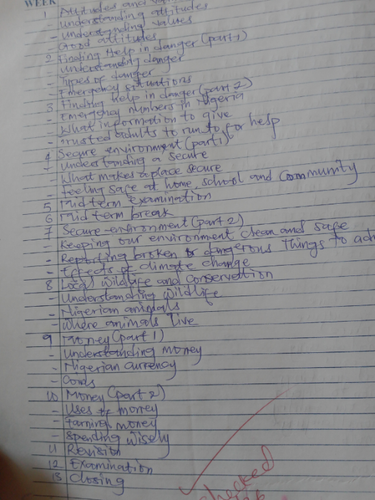 WEEK
1 Attitudes and
- Understanding attitudes
- Understanding values
- Good attitudes
2 Finding help in danger (part 1)
- Understanding danger
- Types of danger
- Emergency situations
3 Finding help in danger (part 2)
- Emergency numbers in Nigeria
- What information to give
- Trusted adults to run to for help
4 Secure environment (part 1)
- Understanding a secure
- What makes a place secure
- Feeling safe at home, school and community
5 Mid term examination
6 Mid term break
7 Secure environment (part 2)
- Keeping our environment clean and safe
- Reporting broken or dangerous things to adu
- Effects of climate change
8 Local wildlife and conservation
- Understanding wildlife
- Nigerian animals
- Where animals live
9 Money (part 1)
- Understanding money
- Nigerian currency
- Cards
10 Money (part 2)
- Uses of money
- Earning money
- Spending wisely
11 Revision
12 Examination
13 Closing
checked